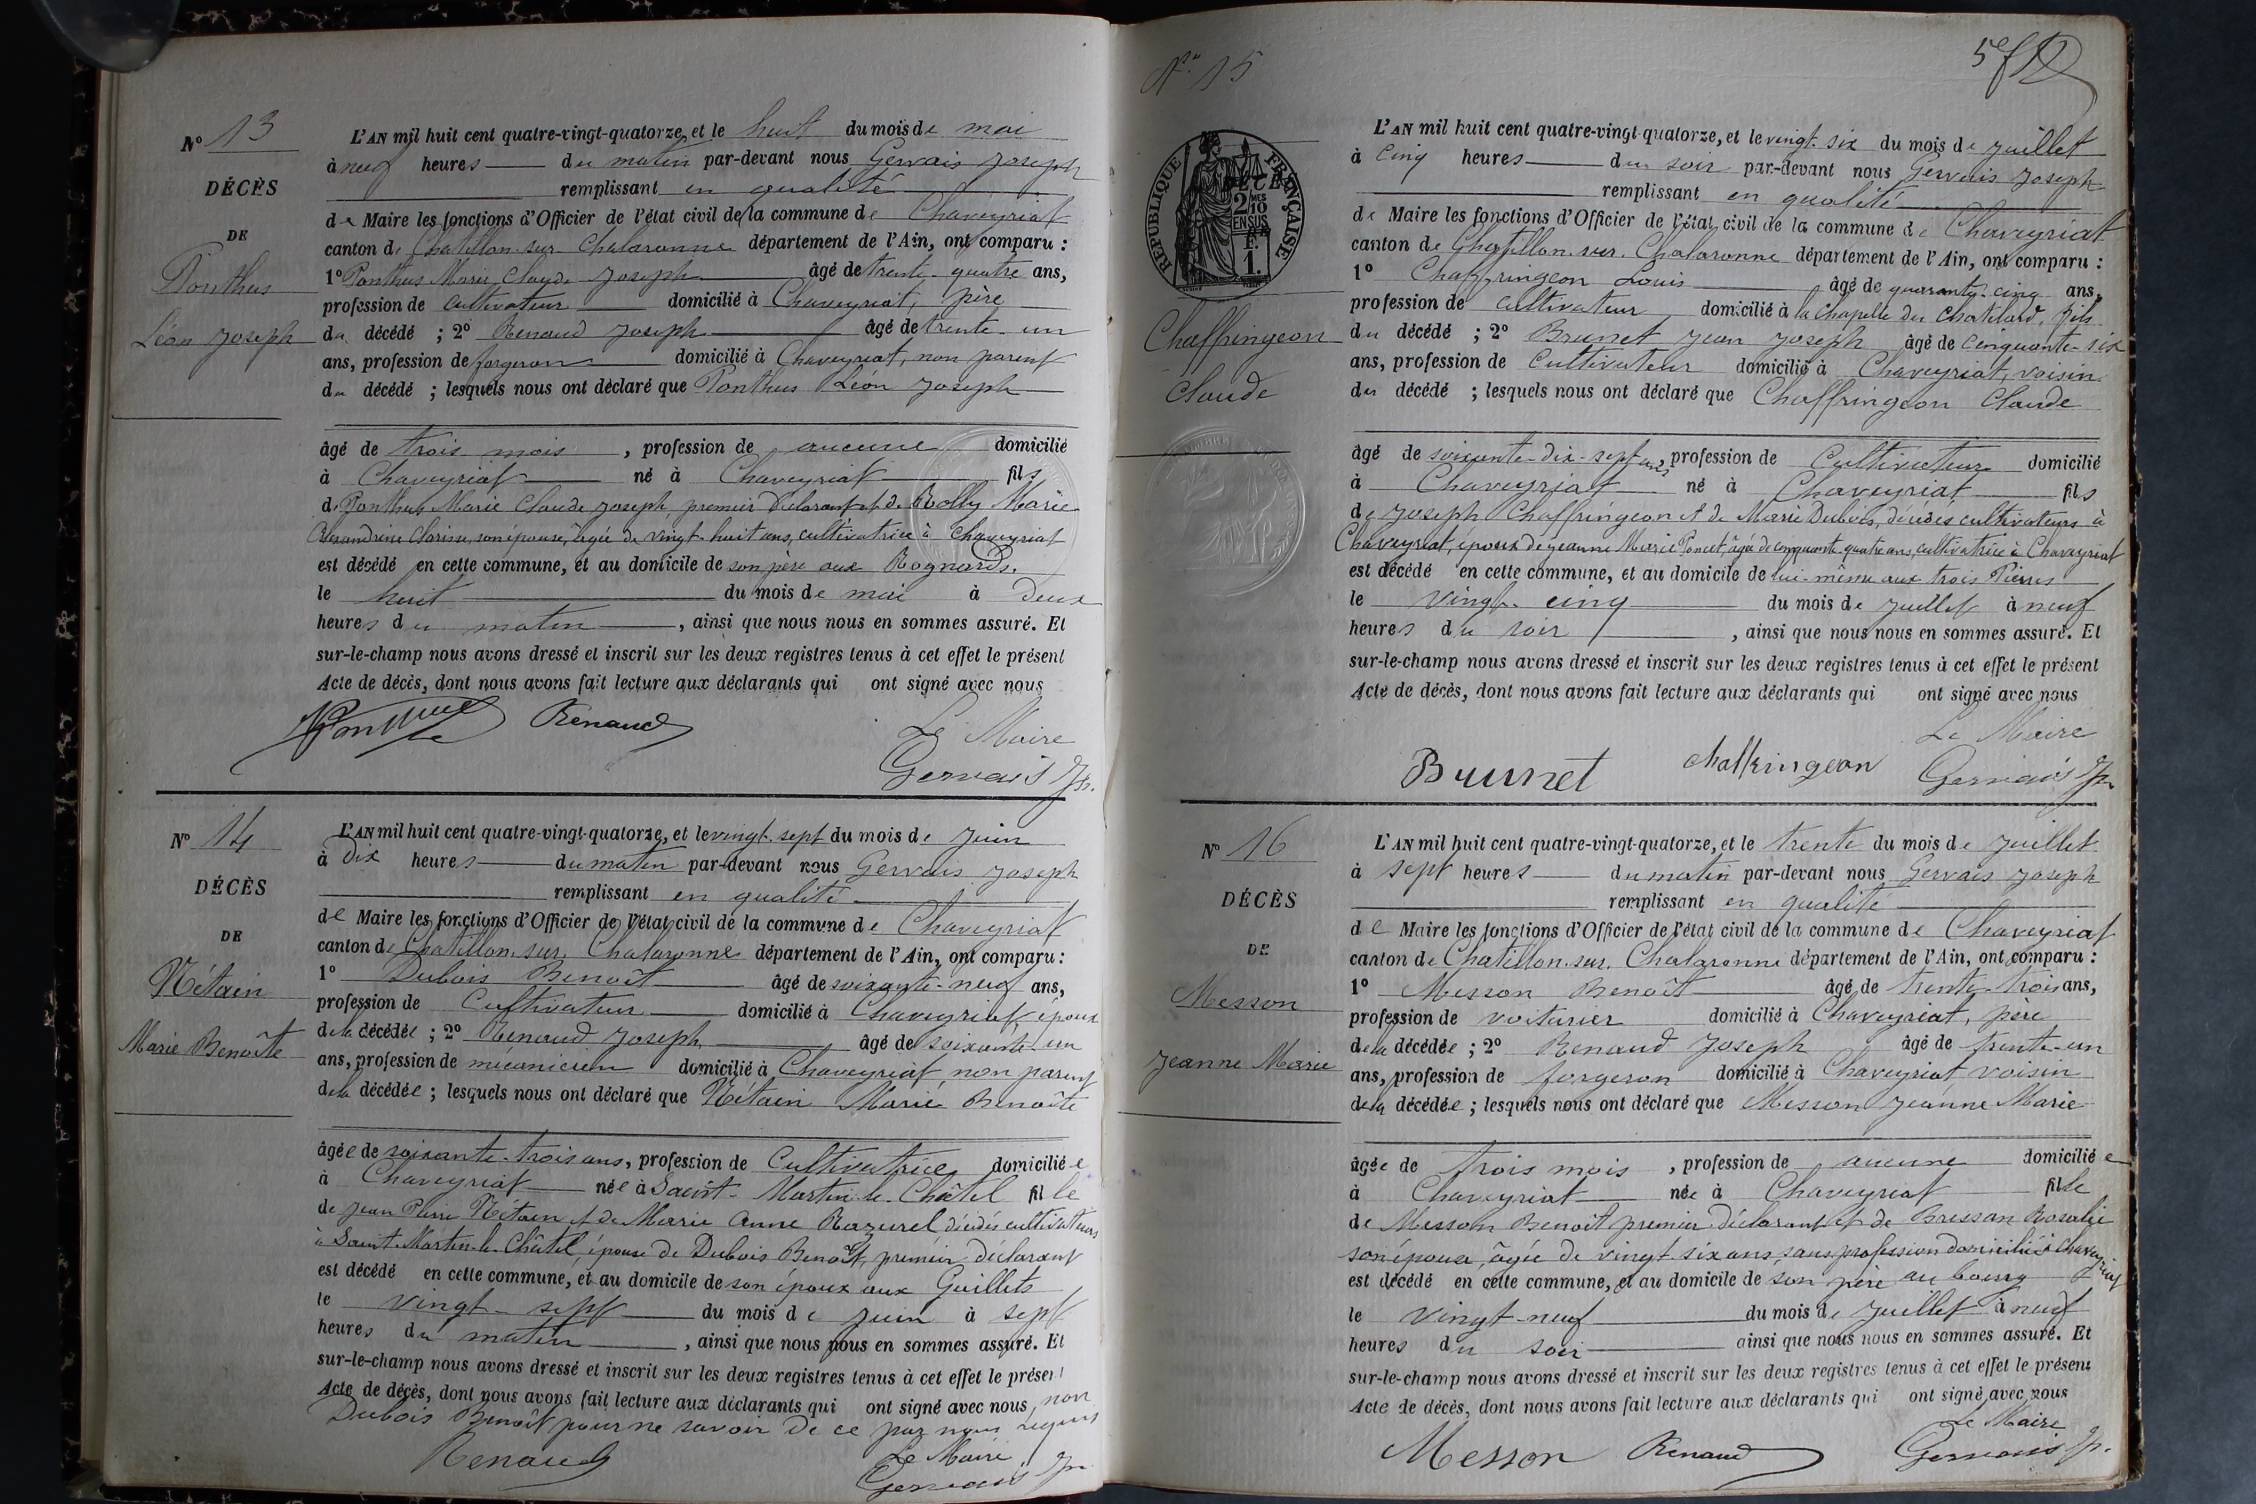 Nº 13
DÉCÈS
DE
Ponthus
Léon Joseph
L'AN mil huit cent quatre-vingt-quatorze, et le huit du mois de mai
à neuf heures du matin par-devant nous Gervais Joseph
remplissant en qualité
de Maire les fonctions d'Officier de l'état civil de la commune de Chaveyriat
canton de Chatillon-sur-Chalaronne département de l'Ain, ont comparu :
1º Ponthus Marie Claude Joseph âgé de trente-quatre ans,
profession de cultivateur domicilié à Chaveyriat, père
du décédé ; 2º Renaud Joseph âgé de trente-un
ans, profession de forgeron domicilié à Chaveyriat, non parent
du décédé ; lesquels nous ont déclaré que Ponthus Léon Joseph
âgé de trois mois, profession de aucune domicilié
à Chaveyriat né à Chaveyriat fils
de Ponthus Marie Claude Joseph premier déclarant et de Rolly Marie
Alexandrine Clarisse, son épouse, âgée de vingt-huit ans, cultivatrice à Chaveyriat
est décédé en cette commune, et au domicile de son père aux Rognards.
le huit du mois de mai à deux
heures du matin, ainsi que nous nous en sommes assuré. Et
sur-le-champ nous avons dressé et inscrit sur les deux registres tenus à cet effet le présent
Acte de décès, dont nous avons fait lecture aux déclarants qui ont signé avec nous
Ponthus Renaud Le Maire
Gervais Jh.
Nº 14
DÉCÈS
DE
Nétain
Marie Benoîte
L'AN mil huit cent quatre-vingt-quatorze, et le vingt-sept du mois de juin
à dix heures du matin par-devant nous Gervais Joseph
remplissant en qualité
de Maire les fonctions d'Officier de l'état civil de la commune de Chaveyriat
canton de Chatillon-sur-Chalaronne département de l'Ain, ont comparu :
1º Dubois Benoît âgé de soixante-neuf ans,
profession de Cultivateur domicilié à Chaveyriat, époux
de la décédée ; 2º Renaud Joseph âgé de soixante-un
ans, profession de mécanicien domicilié à Chaveyriat, non parent
de la décédée ; lesquels nous ont déclaré que Nétain Marie Benoîte
âgée de soixante-trois ans, profession de Cultivatrice domiciliée
à Chaveyriat née à Saint-Martin-le-Châtel fille
de Jean Pierre Nétain et de Marie Anne Razurel décédés cultivateurs
à Saint-Martin-le-Châtel, épouse de Dubois Benoît, premier déclarant
est décédé en cette commune, et au domicile de son époux aux Guillets
le vingt-sept du mois de juin à sept
heures du matin, ainsi que nous nous en sommes assuré. Et
sur-le-champ nous avons dressé et inscrit sur les deux registres tenus à cet effet le présent
Acte de décès, dont nous avons fait lecture aux déclarants qui ont signé avec nous non
Dubois Benoît pour ne savoir de ce par nous requis
Renaud Le Maire
Gervais Jh.
5 f
Nº 15
RÉPUBLIQUE FRANÇAISE
2 MES
10
EN SUS
1 F.
Chaffringeon
Claude
L'AN mil huit cent quatre-vingt-quatorze, et le vingt-six du mois de juillet
à cinq heures du soir par-devant nous Gervais Joseph
remplissant en qualité
de Maire les fonctions d'Officier de l'état civil de la commune de Chaveyriat
canton de Chatillon-sur-Chalaronne département de l'Ain, ont comparu :
1º Chaffringeon Louis âgé de quarante-cinq ans,
profession de cultivateur domicilié à la Chapelle du Chatelard, fils
du décédé ; 2º Brunet Jean Joseph âgé de cinquante-six
ans, profession de Cultivateur domicilié à Chaveyriat, voisin
du décédé ; lesquels nous ont déclaré que Chaffringeon Claude
âgé de soixante-dix-sept ans, profession de Cultivateur domicilié
à Chaveyriat né à Chaveyriat fils
de Joseph Chaffringeon et de Marie Dubois, décédés cultivateurs à
Chaveyriat, époux de Jeanne Marie Poncet, âgée de cinquante quatre ans, cultivatrice à Chaveyriat
est décédé en cette commune, et au domicile de lui-même aux trois Pierres
le vingt-cinq du mois de juillet à neuf
heures du soir, ainsi que nous nous en sommes assuré. Et
sur-le-champ nous avons dressé et inscrit sur les deux registres tenus à cet effet le présent
Acte de décès, dont nous avons fait lecture aux déclarants qui ont signé avec nous
Le Maire
Brunet Chaffringeon Gervais Jh
Nº 16
DÉCÈS
DE
Messon
Jeanne Marie
L'AN mil huit cent quatre-vingt-quatorze, et le trente du mois de juillet
à sept heures du matin par-devant nous Gervais Joseph
remplissant en qualité
de Maire les fonctions d'Officier de l'état civil de la commune de Chaveyriat
canton de Chatillon-sur-Chalaronne département de l'Ain, ont comparu :
1º Messon Benoît âgé de trente-trois ans,
profession de voiturier domicilié à Chaveyriat, père
de la décédée ; 2º Renaud Joseph âgé de trente-un
ans, profession de forgeron domicilié à Chaveyriat voisin
de la décédée ; lesquels nous ont déclaré que Messon Jeanne Marie
âgée de trois mois, profession de aucune domiciliée
à Chaveyriat née à Chaveyriat fille
de Messon Benoît premier déclarant et de Bressan Rosalie
son épouse, âgée de vingt-six ans, sans profession domiciliée à Chaveyriat
est décédé en cette commune, et au domicile de son père au bourg
le vingt-neuf du mois de juillet à neuf
heures du soir ainsi que nous nous en sommes assuré. Et
sur-le-champ nous avons dressé et inscrit sur les deux registres tenus à cet effet le présent
Acte de décès, dont nous avons fait lecture aux déclarants qui ont signé avec nous
Le Maire
Messon Renaud Gervais Jh.